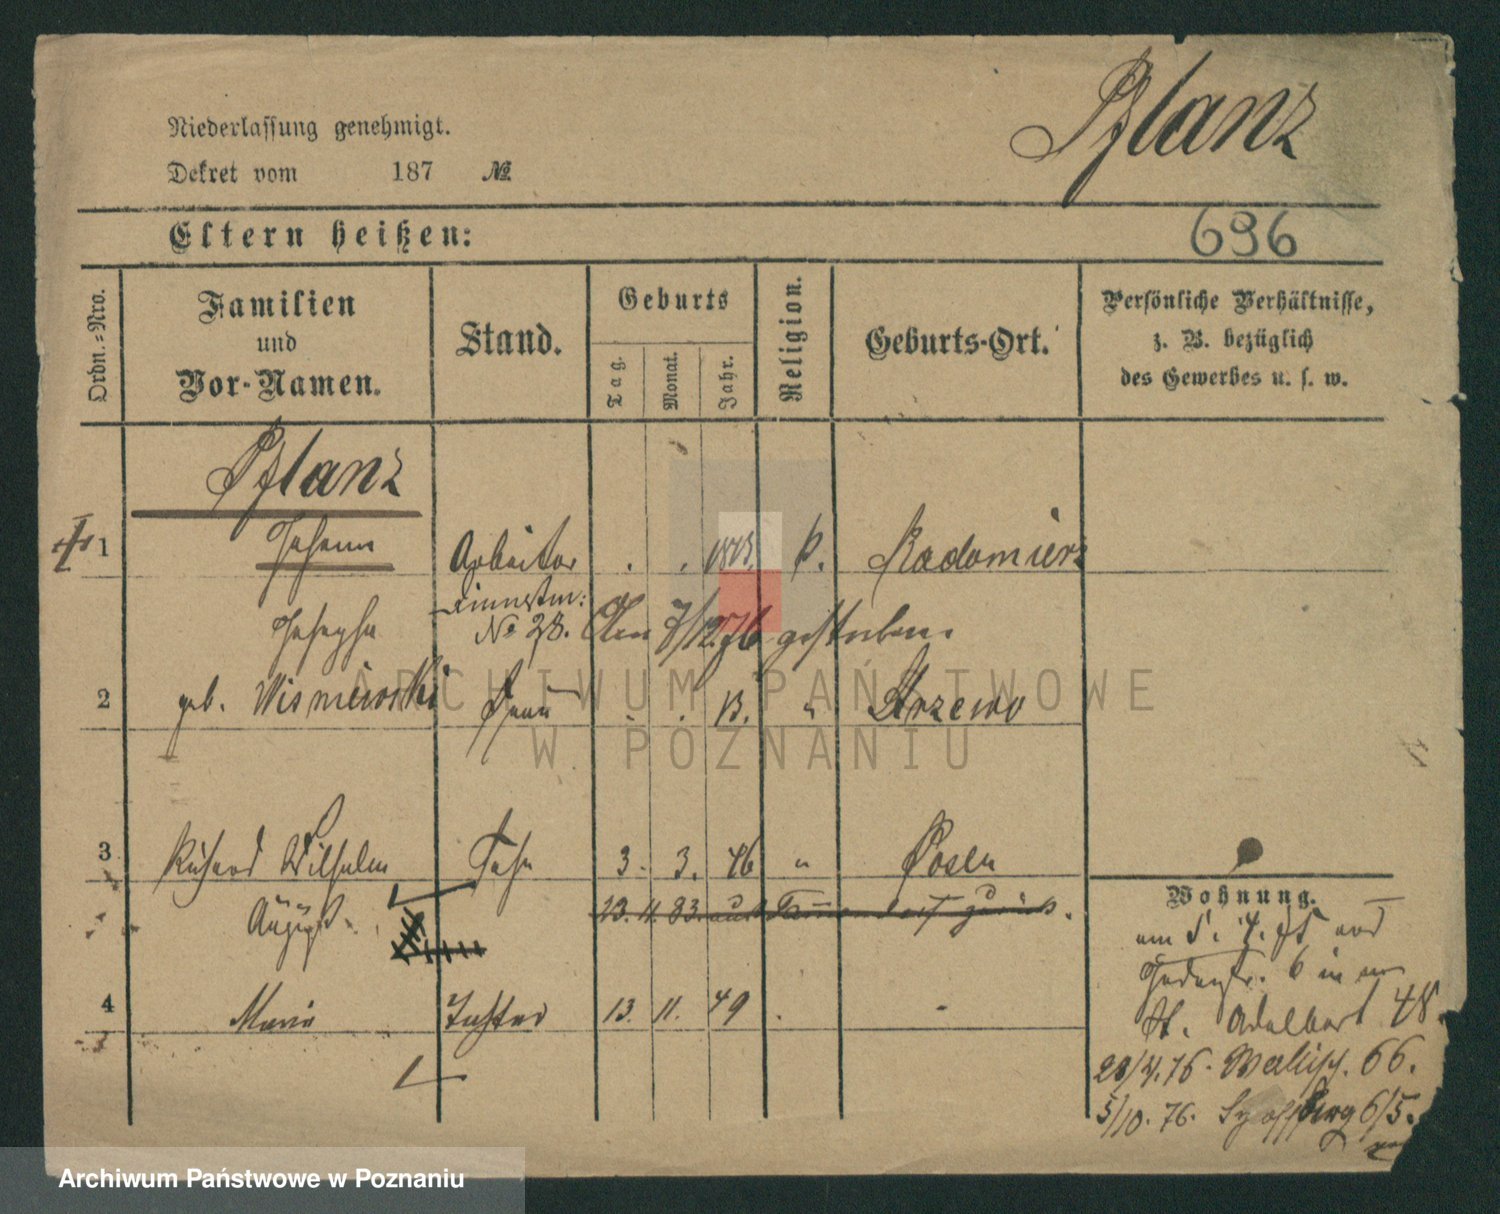 Pflanz
Niederlassung genehmigt.
Dekret vom 187 №
Eltern heißen:
696
Ordn.-Nro.
Familien
und
Vor-Namen.
Stand.
Geburts
Tag.
Monat.
Jahr.
Religion.
Geburts-Ort.
Persönliche Verhältnisse,
z. B. bezüglich
des Gewerbes u. s. w.
Pflanz
1 Johann Arbeiter . . k. Radomierz
№ 28. Am 7/12.76 gestorben.
Josepha
2 geb. Wisniewski Frau . . 13. " Strzewo
3 Richard Wilhelm Sohn 3. 3. 46 " Posen
August. 23. 11. 83. zurück.
4 Marie Tochter 13. 11. 49 . -
Wohnung.
am 5. 4.
6 in
St. Adalbert 48.
28/4.76. Wallisch. 66.
5/10.76. 6/5.
ARCHIWUM PAŃSTWOWE
W POZNANIU
Archiwum Państwowe w Poznaniu